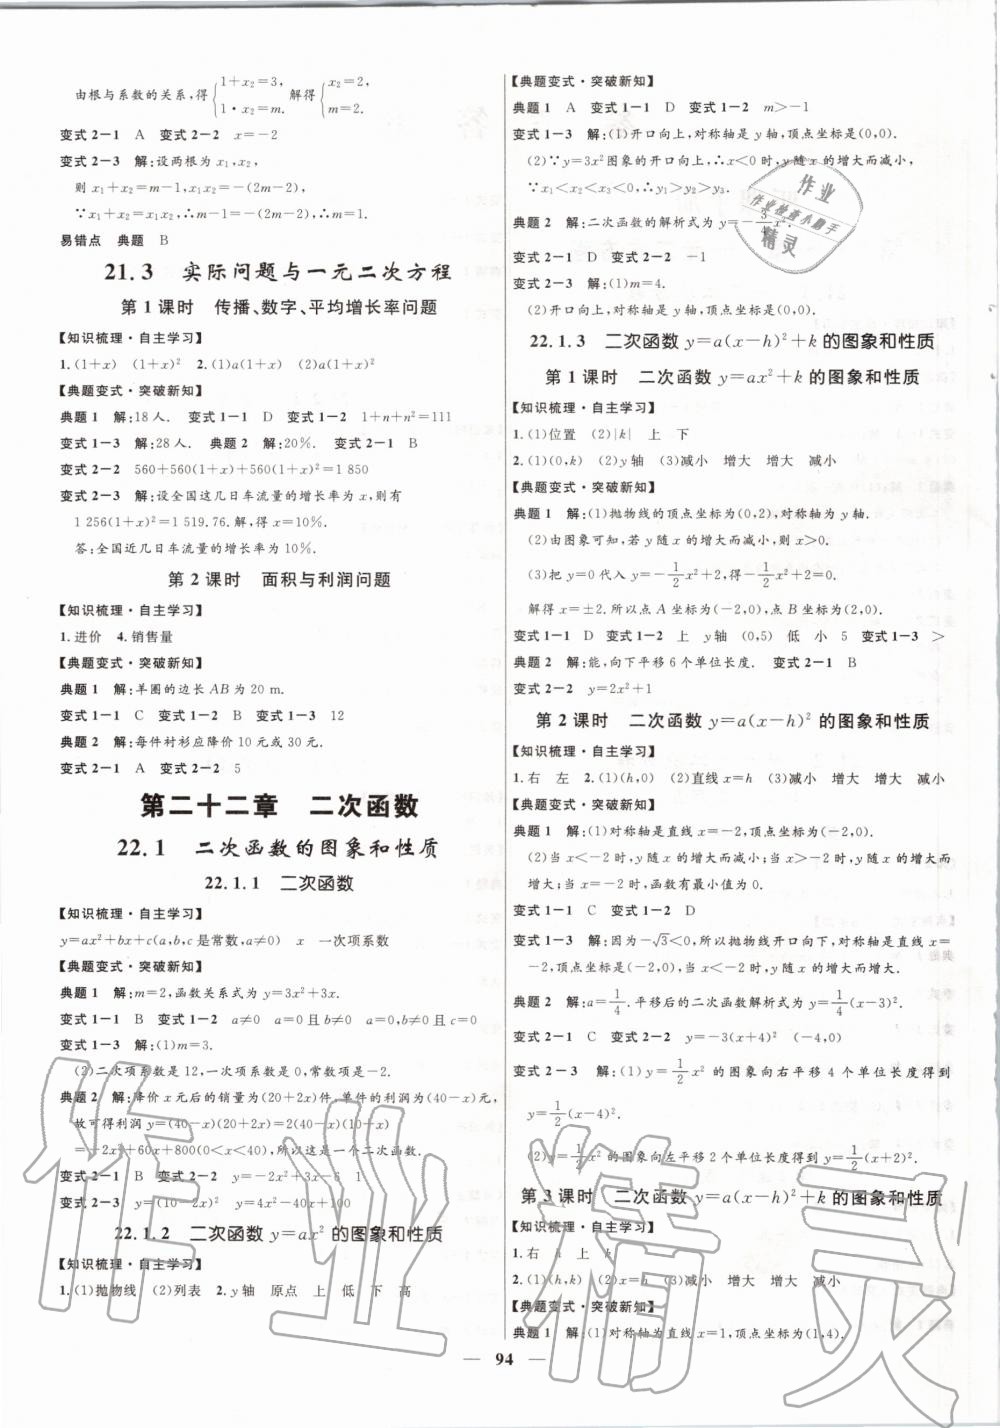 由根与系数的关系,得{1+x₂=3, 1·x₂=m. 解得{x₂=2, m=2.
变式2-1 A 变式2-2 x=-2
变式2-3 解:设两根为x₁,x₂,
则x₁+x₂=m-1,x₁x₂=-(2m-2).
∵x₁+x₂=x₁x₂,∴m-1=-(2m-2).∴m=1.
易错点 典题 B
21.3 实际问题与一元二次方程
第1课时 传播、数字、平均增长率问题
【知识梳理·自主学习】
1.(1+x) (1+x)² 2.(1)a(1+x) (2)a(1+x)²
【典题变式·突破新知】
典题1 解:18人. 变式1-1 D 变式1-2 1+n+n²=111
变式1-3 解:28人. 典题2 解:20%. 变式2-1 B
变式2-2 560+560(1+x)+560(1+x)²=1 850
变式2-3 解:设全国这几日车流量的增长率为x,则有
1 256(1+x)²=1 519.76. 解,得x=10%.
答:全国近几日车流量的增长率为10%.
第2课时 面积与利润问题
【知识梳理·自主学习】
1.进价 4.销售量
【典题变式·突破新知】
典题1 解:羊圈的边长AB为20 m.
变式1-1 C 变式1-2 B 变式1-3 12
典题2 解:每件衬衫应降价10元或30元.
变式2-1 A 变式2-2 5
第二十二章 二次函数
22.1 二次函数的图象和性质
22.1.1 二次函数
【知识梳理·自主学习】
y=ax²+bx+c(a,b,c是常数,a≠0) x 一次项系数
【典题变式·突破新知】
典题1 解:m=2,函数关系式为y=3x²+3x.
变式1-1 B 变式1-2 a≠0 a=0且b≠0 a=0,b≠0且c=0
变式1-3 解:(1)m=3.
(2)二次项系数是12,一次项系数是0,常数项是-2.
典题2 解:降价x元后的销量为(20+2x)件,单件的利润为(40-x)元,
故可得利润y=(40-x)(20+2x)=2(40-x)(10+x)
=-2x²+60x+800(0<x<40).所以这是一个二次函数.
变式2-1 B 变式2-2 y=-2x²+3x-6 1
变式2-3 y=(10-2x)² y=4x²-40x+100
22.1.2 二次函数y=ax²的图象和性质
【知识梳理·自主学习】
1.(1)抛物线 (2)列表 2.y轴 原点 上 低 下 高
【典题变式·突破新知】
典题1 A 变式1-1 D 变式1-2 m>-1
变式1-3 解:(1)开口向上,对称轴是y轴,顶点坐标为(0,0).
(2)∵y=3x²图象的开口向上,∴x<0时,y随x的增大而减小,
∵x₁<x₂<x₃<0,∴y₁>y₂>y₃.
典题2 解:二次函数的解析式为y=-3/4x².
变式2-1 D 变式2-2 -1
变式2-3 解:(1)m=4.
(2)开口向上,对称轴是y轴,顶点坐标为(0,0).
22.1.3 二次函数y=a(x-h)²+k的图象和性质
第1课时 二次函数y=ax²+k的图象和性质
【知识梳理·自主学习】
1.(1)位置 (2)|k| 上 下
2.(1)(0,k) (2)y轴 (3)减小 增大 增大 减小
【典题变式·突破新知】
典题1 解:(1)抛物线的顶点坐标为(0,2),对称轴为y轴.
(2)由图象可知,若y随x的增大而减小,则x>0.
(3)把y=0代入y=-1/2x²+2,得-1/2x²+2=0.
解得x=±2.所以点A坐标为(-2,0),点B坐标为(2,0).
变式1-1 D 变式1-2 上 y轴 (0,5) 低 小 5 变式1-3 >
典题2 解:能,向下平移6个单位长度. 变式2-1 B
变式2-2 y=2x²+1
第2课时 二次函数y=a(x-h)²的图象和性质
【知识梳理·自主学习】
1.右 左 2.(1)(h,0) (2)直线x=h (3)减小 增大 增大 减小
【典题变式·突破新知】
典题1 解:(1)对称轴是直线x=-2,顶点坐标为(-2,0).
(2)当x<-2时,y随x的增大而减小;当x>-2时,y随x的增大而
增大;当x=-2时,函数有最小值为0.
变式1-1 C 变式1-2 D
变式1-3 解:因为-√3<0,所以抛物线开口向下,对称轴是直线x=
-2,顶点坐标为(-2,0),当x<-2时,y随x的增大而增大.
典题2 解:a=1/4.平移后的二次函数解析式为y=1/4(x-3)².
变式2-1 C 变式2-2 y=-3(x+4)² (-4,0)
变式2-3 解:(1)y=1/2x²的图象向右平移4个单位长度得到
y=1/2(x-4)².
(2)y=-1/2x²的图象向左平移2个单位长度得到y=-1/2(x+2)².
第3课时 二次函数y=a(x-h)²+k的图象和性质
【知识梳理·自主学习】
1.右 h 上 k
2.(1)(h,k) (2)x=h (3)减小 增大 增大 减小
【典题变式·突破新知】
典题1 解:(1)对称轴为直线x=1,顶点坐标为(1,4).
— 94 —
作业
作业检查小助手
精灵
作业精灵